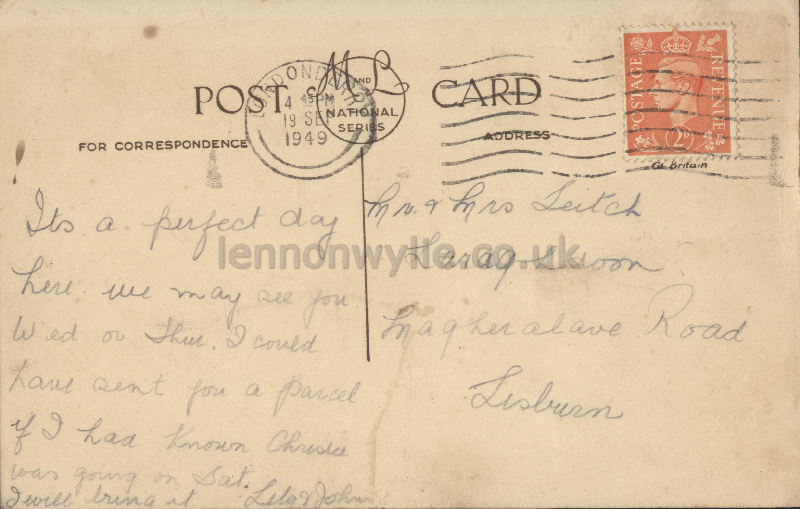 POST CARD
M AND L
NATIONAL
SERIES
FOR CORRESPONDENCE
ADDRESS
LONDONDERRY
4 45 PM
19 SEP
1949
POSTAGE REVENUE
2D
Gt. Britain
Its a perfect day
here we may see you
Wed or Thur. I could
have sent you a parcel
if I had known Chrissie
was going on Sat.
I will bring it Lily & John
Mr. & Mrs Leitch
Magheralave Road
Lisburn
lennonwylie.co.uk